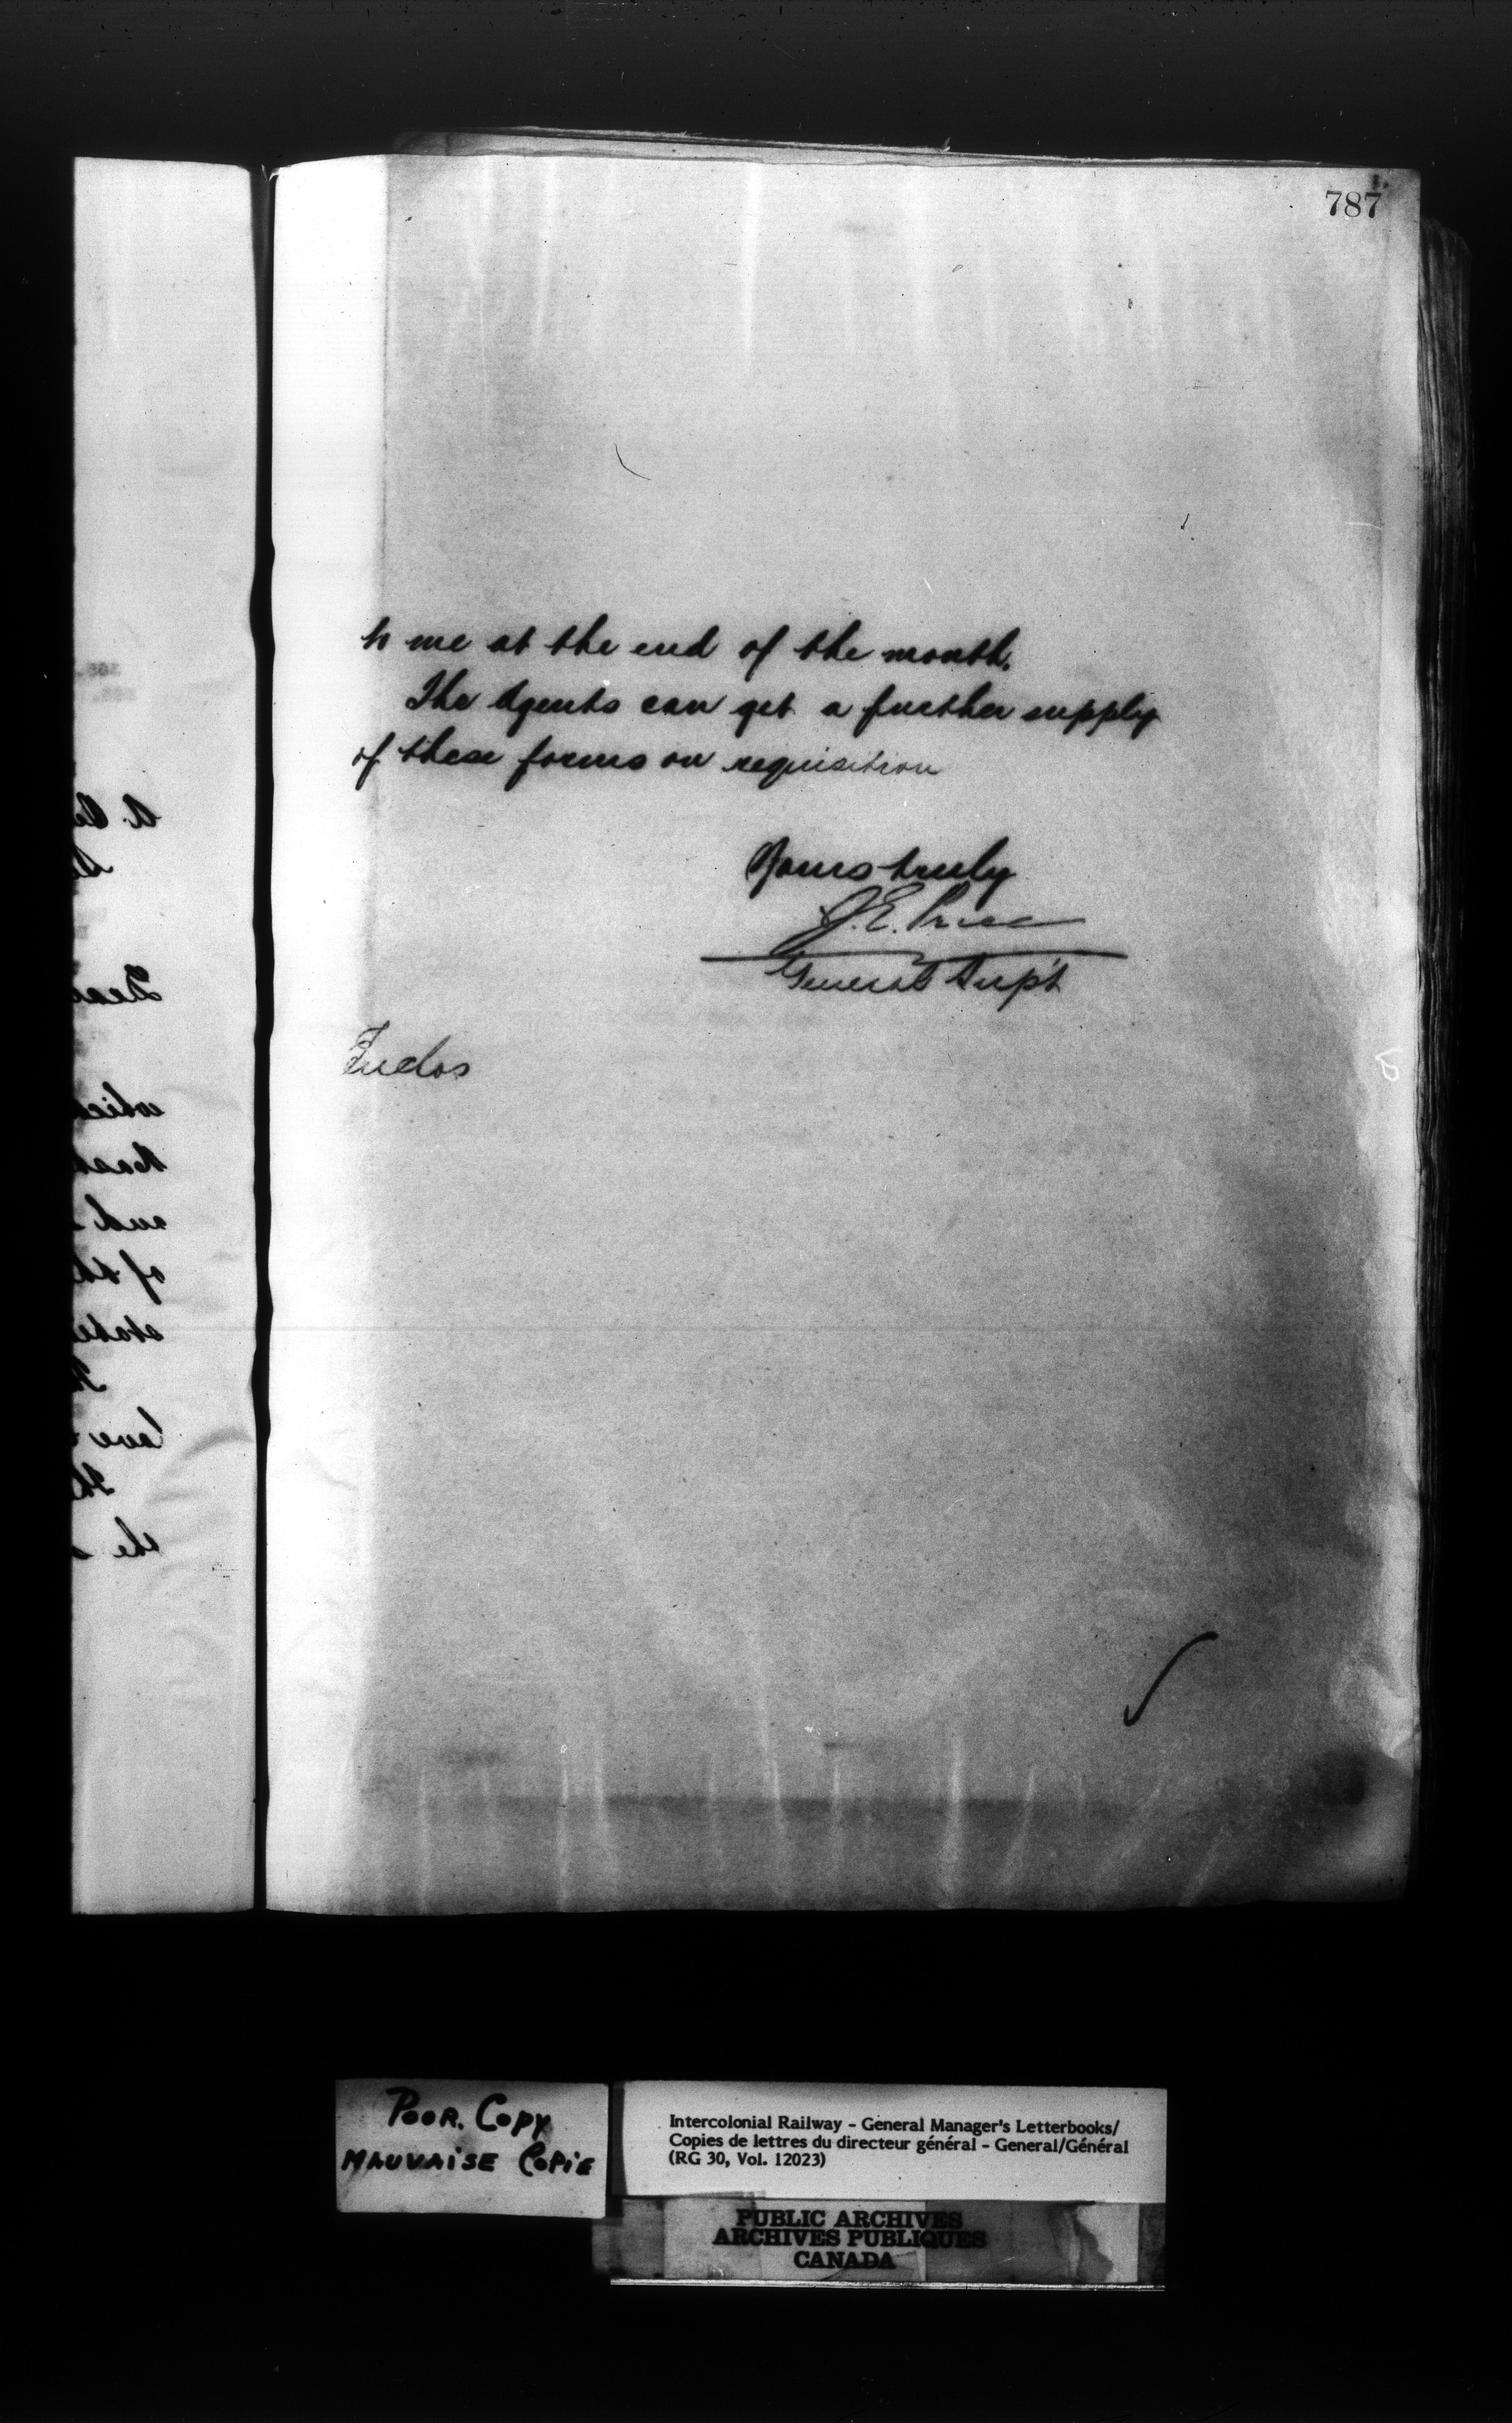 787
to me at the end of the month.
The Agents can get a further supply
of these forms on requisition
Yours truly
J.E. Price
General Supt
Enclos
POOR. COPY
MAUVAISE COPIE
Intercolonial Railway - General Manager's Letterbooks/
Copies de lettres du directeur général - General/Général
(RG 30, Vol. 12023)
PUBLIC ARCHIVES
ARCHIVES PUBLIQUES
CANADA